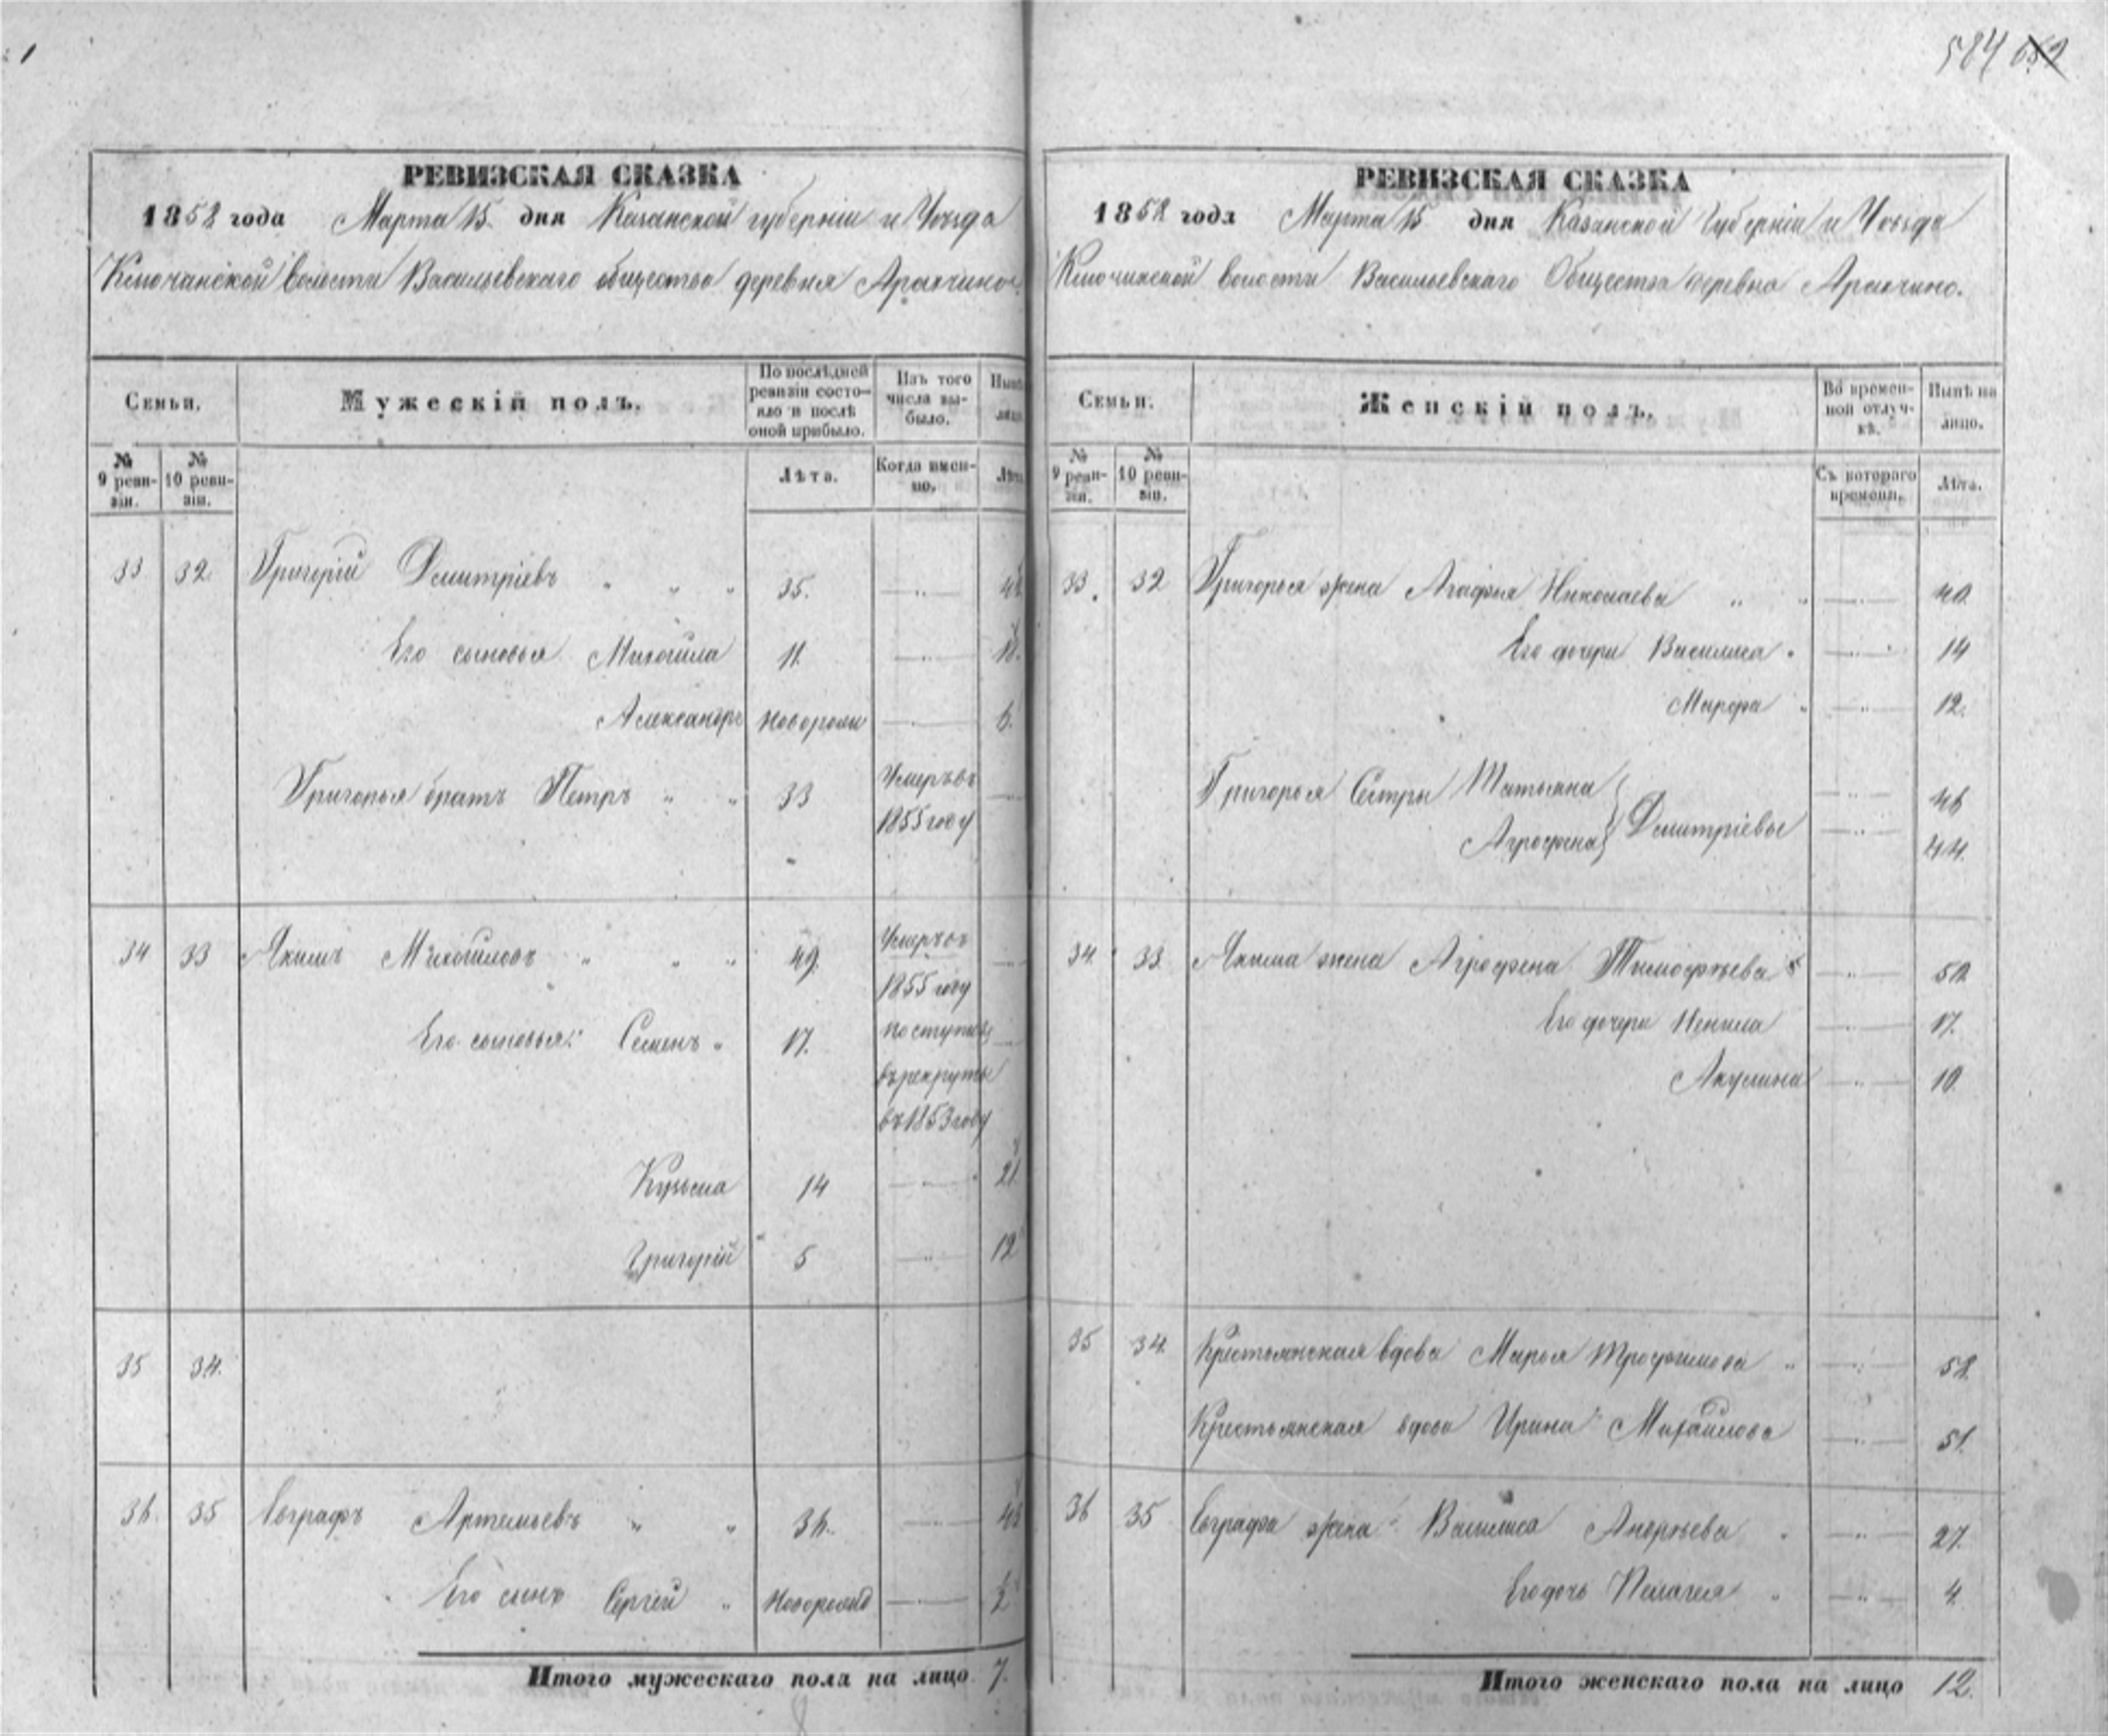 584 652
РЕВИЗСКАЯ СКАЗКА
1858 года Марта 15 дня Казанской губерніи и Уѣзда
Ключанской волости Васильевскаго общества деревня Аракчино.
Семьи.
Мужескій полъ.
По послѣдней ревизіи состо-
яло и послѣ
оной прибыло.
Изъ того
числа вы-
было.
Нынѣ
лицо
№
9 реви-
зіи.
№
10 реви-
зіи.
Лѣта.
Когда имен-
но.
Лѣта
33 32 Григорій Дмитріевъ " " " 35. —"— 43
Его сыновья Михайла 11. —"— 18.
Александръ новорожд —"— 6.
Григорья братъ Петръ " " 33 Умеръ въ
1855 году
34 33 Якимъ Михайловъ " " " 49. Умеръ въ
1855 году
Его сыновья: Семенъ " 17. поступилъ
въ рекруты
въ 1853 году
Кузьма 14 —"— 21
Григорій " 5 —"— 12
35 34.
36. 35 Евграфъ Артемьевъ " " 36. —"—
Его сынъ Сергѣй " Новорожд —— 2
Итого мужескаго пола на лицо 7.
РЕВИЗСКАЯ СКАЗКА
1858 года Марта 15 дня Казанской Губерніи и Уѣзда
Ключинской волости Васильевскаго Общества деревня Аракчино.
Семьи.
Женскій полъ.
Во времен-
ной отлуч-
кѣ.
Нынѣ на
лицо.
№
9 реви-
зіи.
№
10 реви-
зіи.
Съ котораго
времени.
Лѣта.
33. 32 Григорья жена Агафья Николаева " " —"— 40.
Его дочери Василиса " —"— 14
Марфа " —"— 12.
Григорья Сестры Татьяна —"— 46
Агрофена } Дмитріевы —"— 44.
34. 33. Якима жена Агрофена Тимофѣева —"— 52
Его дочери Ненила —"— 17.
Акулина —"— 10.
35 34. Крестьянская вдова Марья Трофимова " —"— 58.
Крестьянская вдова Ирина Михайлова —"— 51.
36 35 Евграфа жена Василиса Андреѣва " —"— 27.
Его дочь Пелагея " —"— 4.
Итого женскаго пола на лицо 12.